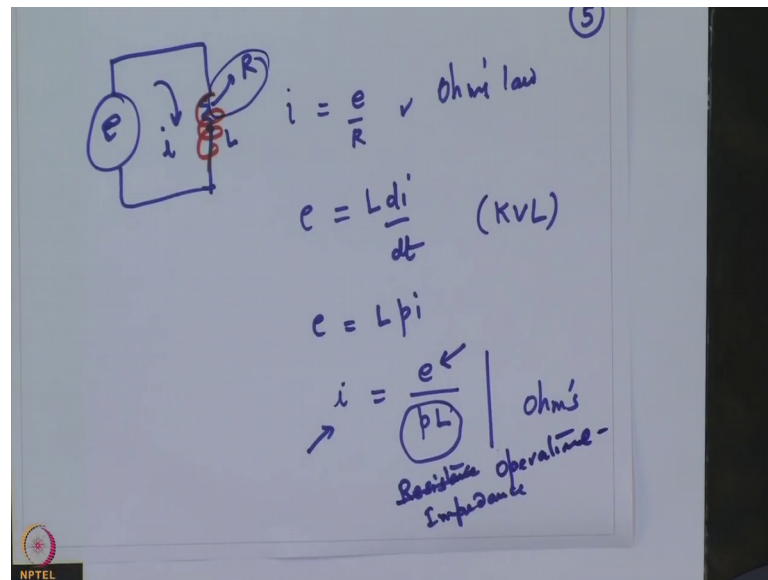 5
R
e
i
L
i = e/R ✓ Ohm's law
e = L di/dt (KVL)
e = Lpi
i = e/pL | Ohm's
Resistance Operational-
Impedance
NPTEL